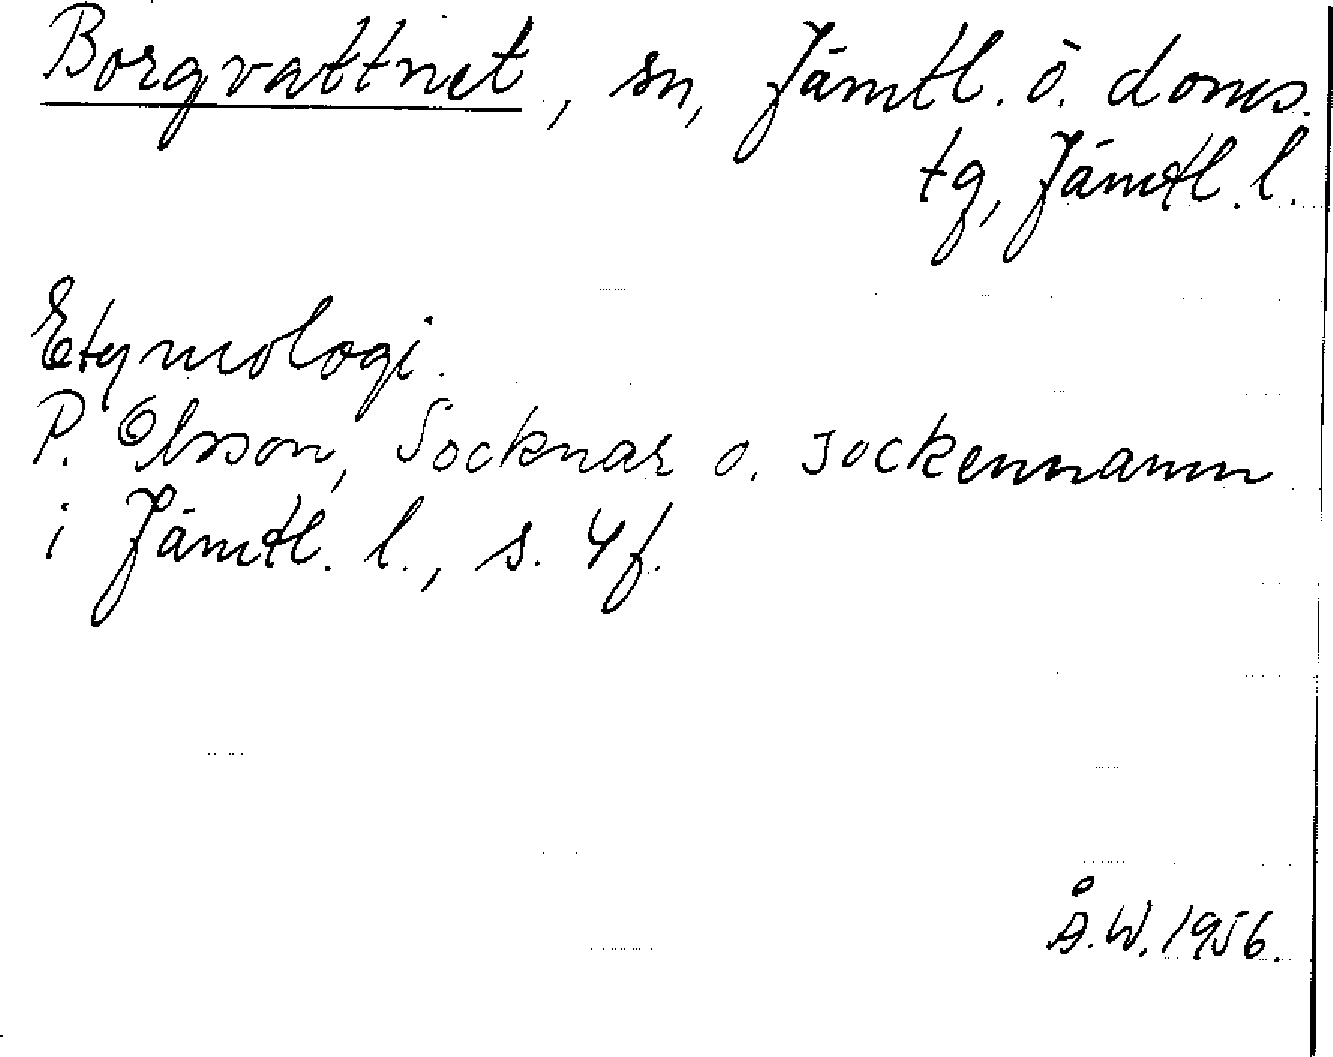 Borgvattnet, sn, Jämtl. ö. doms.
tg, Jämtl. l.
Etymologi.
P. Olsson, Socknar o. sockennamn
i Jämtl. l., s. 4f.
Å.W. 1956.